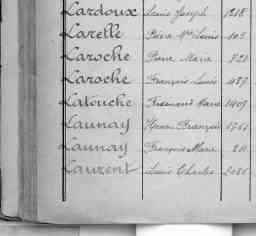 Lardoux Louis Joseph 1218
Larelle Pierre Mie Louis 105
Laroche Pierre Marie 821
Laroche François Louis 489
Latouche Ferdinand Marie 1409
Launay Henri François 1761
Launay François Marie 211
Laurent Louis Charles 2021